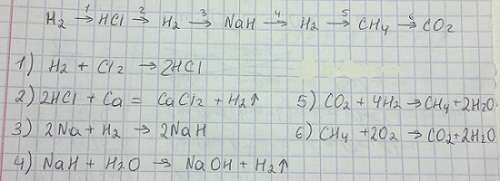 H₂ →¹ HCl →² H₂ →³ NaH →⁴ H₂ →⁵ CH₄ →⁶ CO₂
1) H₂ + Cl₂ → 2HCl
2) 2HCl + Ca = CaCl₂ + H₂↑
3) 2Na + H₂ → 2NaH
4) NaH + H₂O → NaOH + H₂↑
5) CO₂ + 4H₂ → CH₄ + 2H₂O
6) CH₄ + 2O₂ → CO₂ + 2H₂O